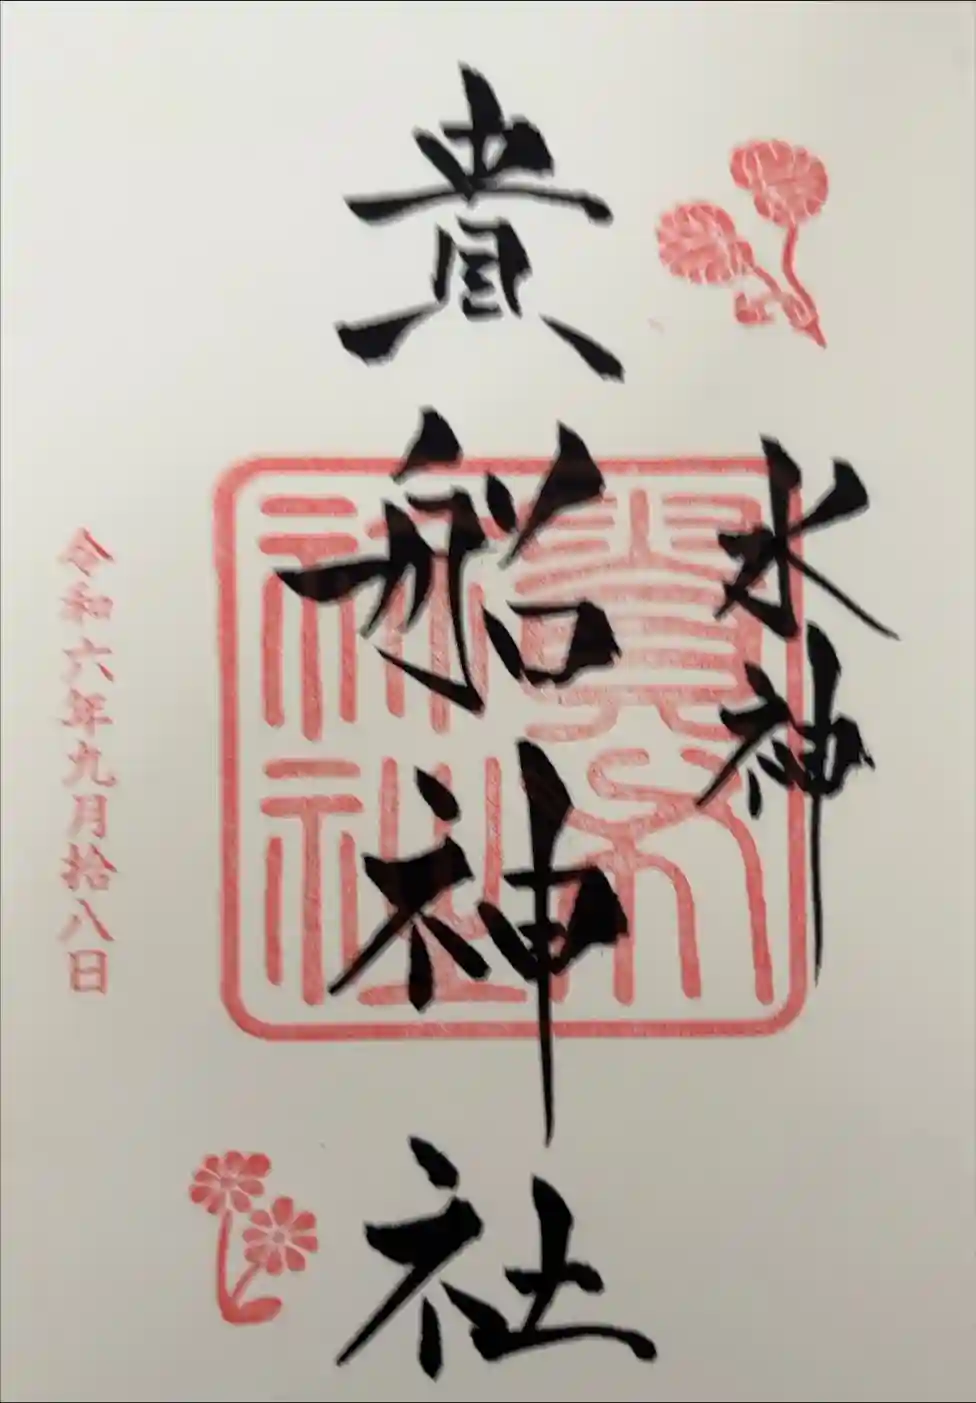 水神
貴船神社
貴布祢社
令和六年九月拾八日